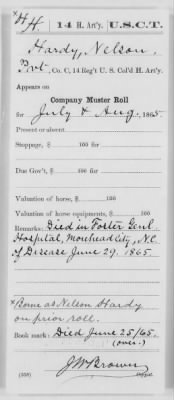 *H. 14 H. Art'y. U.S.C.T.
Hardy, Nelson.
Pvt., Co. C, 14 Reg't U. S. Col'd H. Art'y.
Appears on
Company Muster Roll
for July & Aug., 1865
Present or absent
Stoppage, $ 100 for
Due Gov't, $ 100 for
Valuation of horse, $ 100
Valuation of horse equipments, $ 100
Remarks: Died in Foster Genl
Hospital, Morehead City, N.C.
of Disease June 29. 1865
*Borne as Nelson Hardy
on prior roll.
Book mark: Died June 25/65.
(over.)
J W Brown
(358) Copyist.